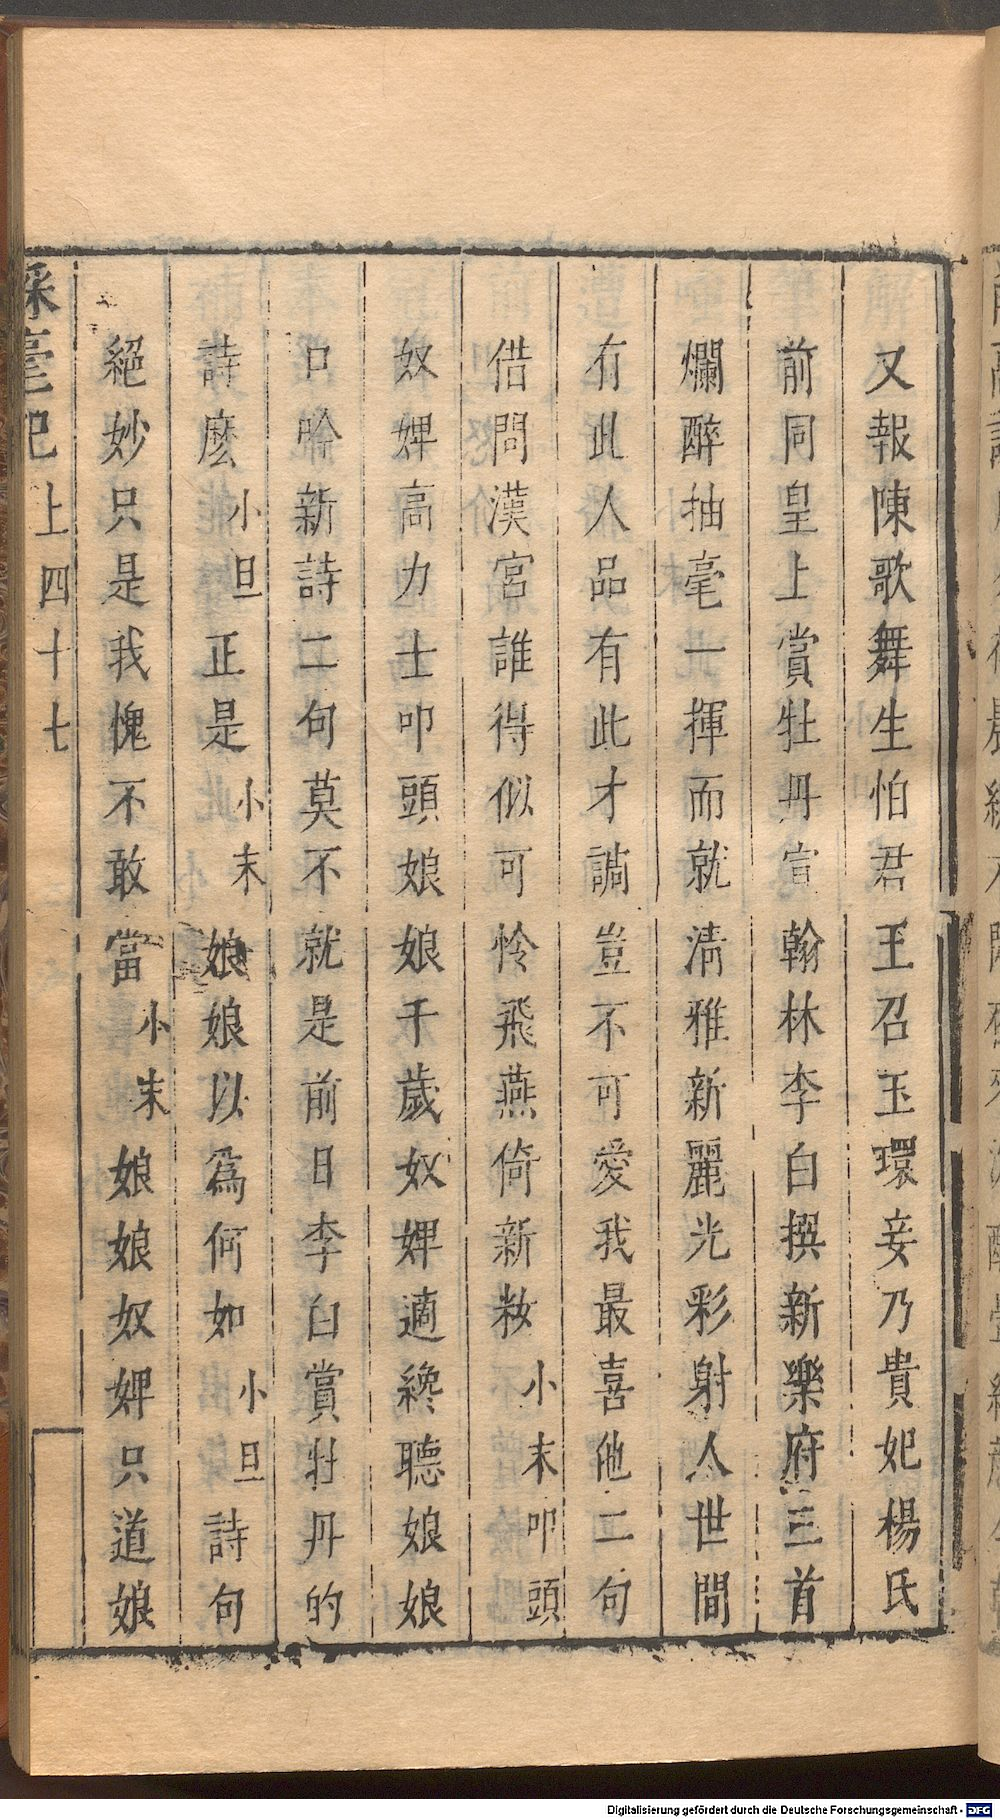 又報陳歌舞生怕君王召玉環妾乃貴妃楊氏
前同皇上賞牡丹宣翰林李白撰新樂府三首
爛醉抽毫一揮而就清雅新麗光彩射人世間
有此人品有此才調豈不可愛我最喜他二句
借問漢宮誰得似可怜飛燕倚新妝小末叩頭
奴婢高力士叩頭娘娘千歲奴婢適纔聽娘娘
口吟新詩二句莫不就是前日李白賞牡丹的
詩麼小旦正是小末娘娘以為何如小旦詩句
絕妙只是我愧不敢當小末娘娘奴婢只道娘
綵毫記 上四十七
Digitalisierung gefördert durch die Deutsche Forschungsgemeinschaft - DFG